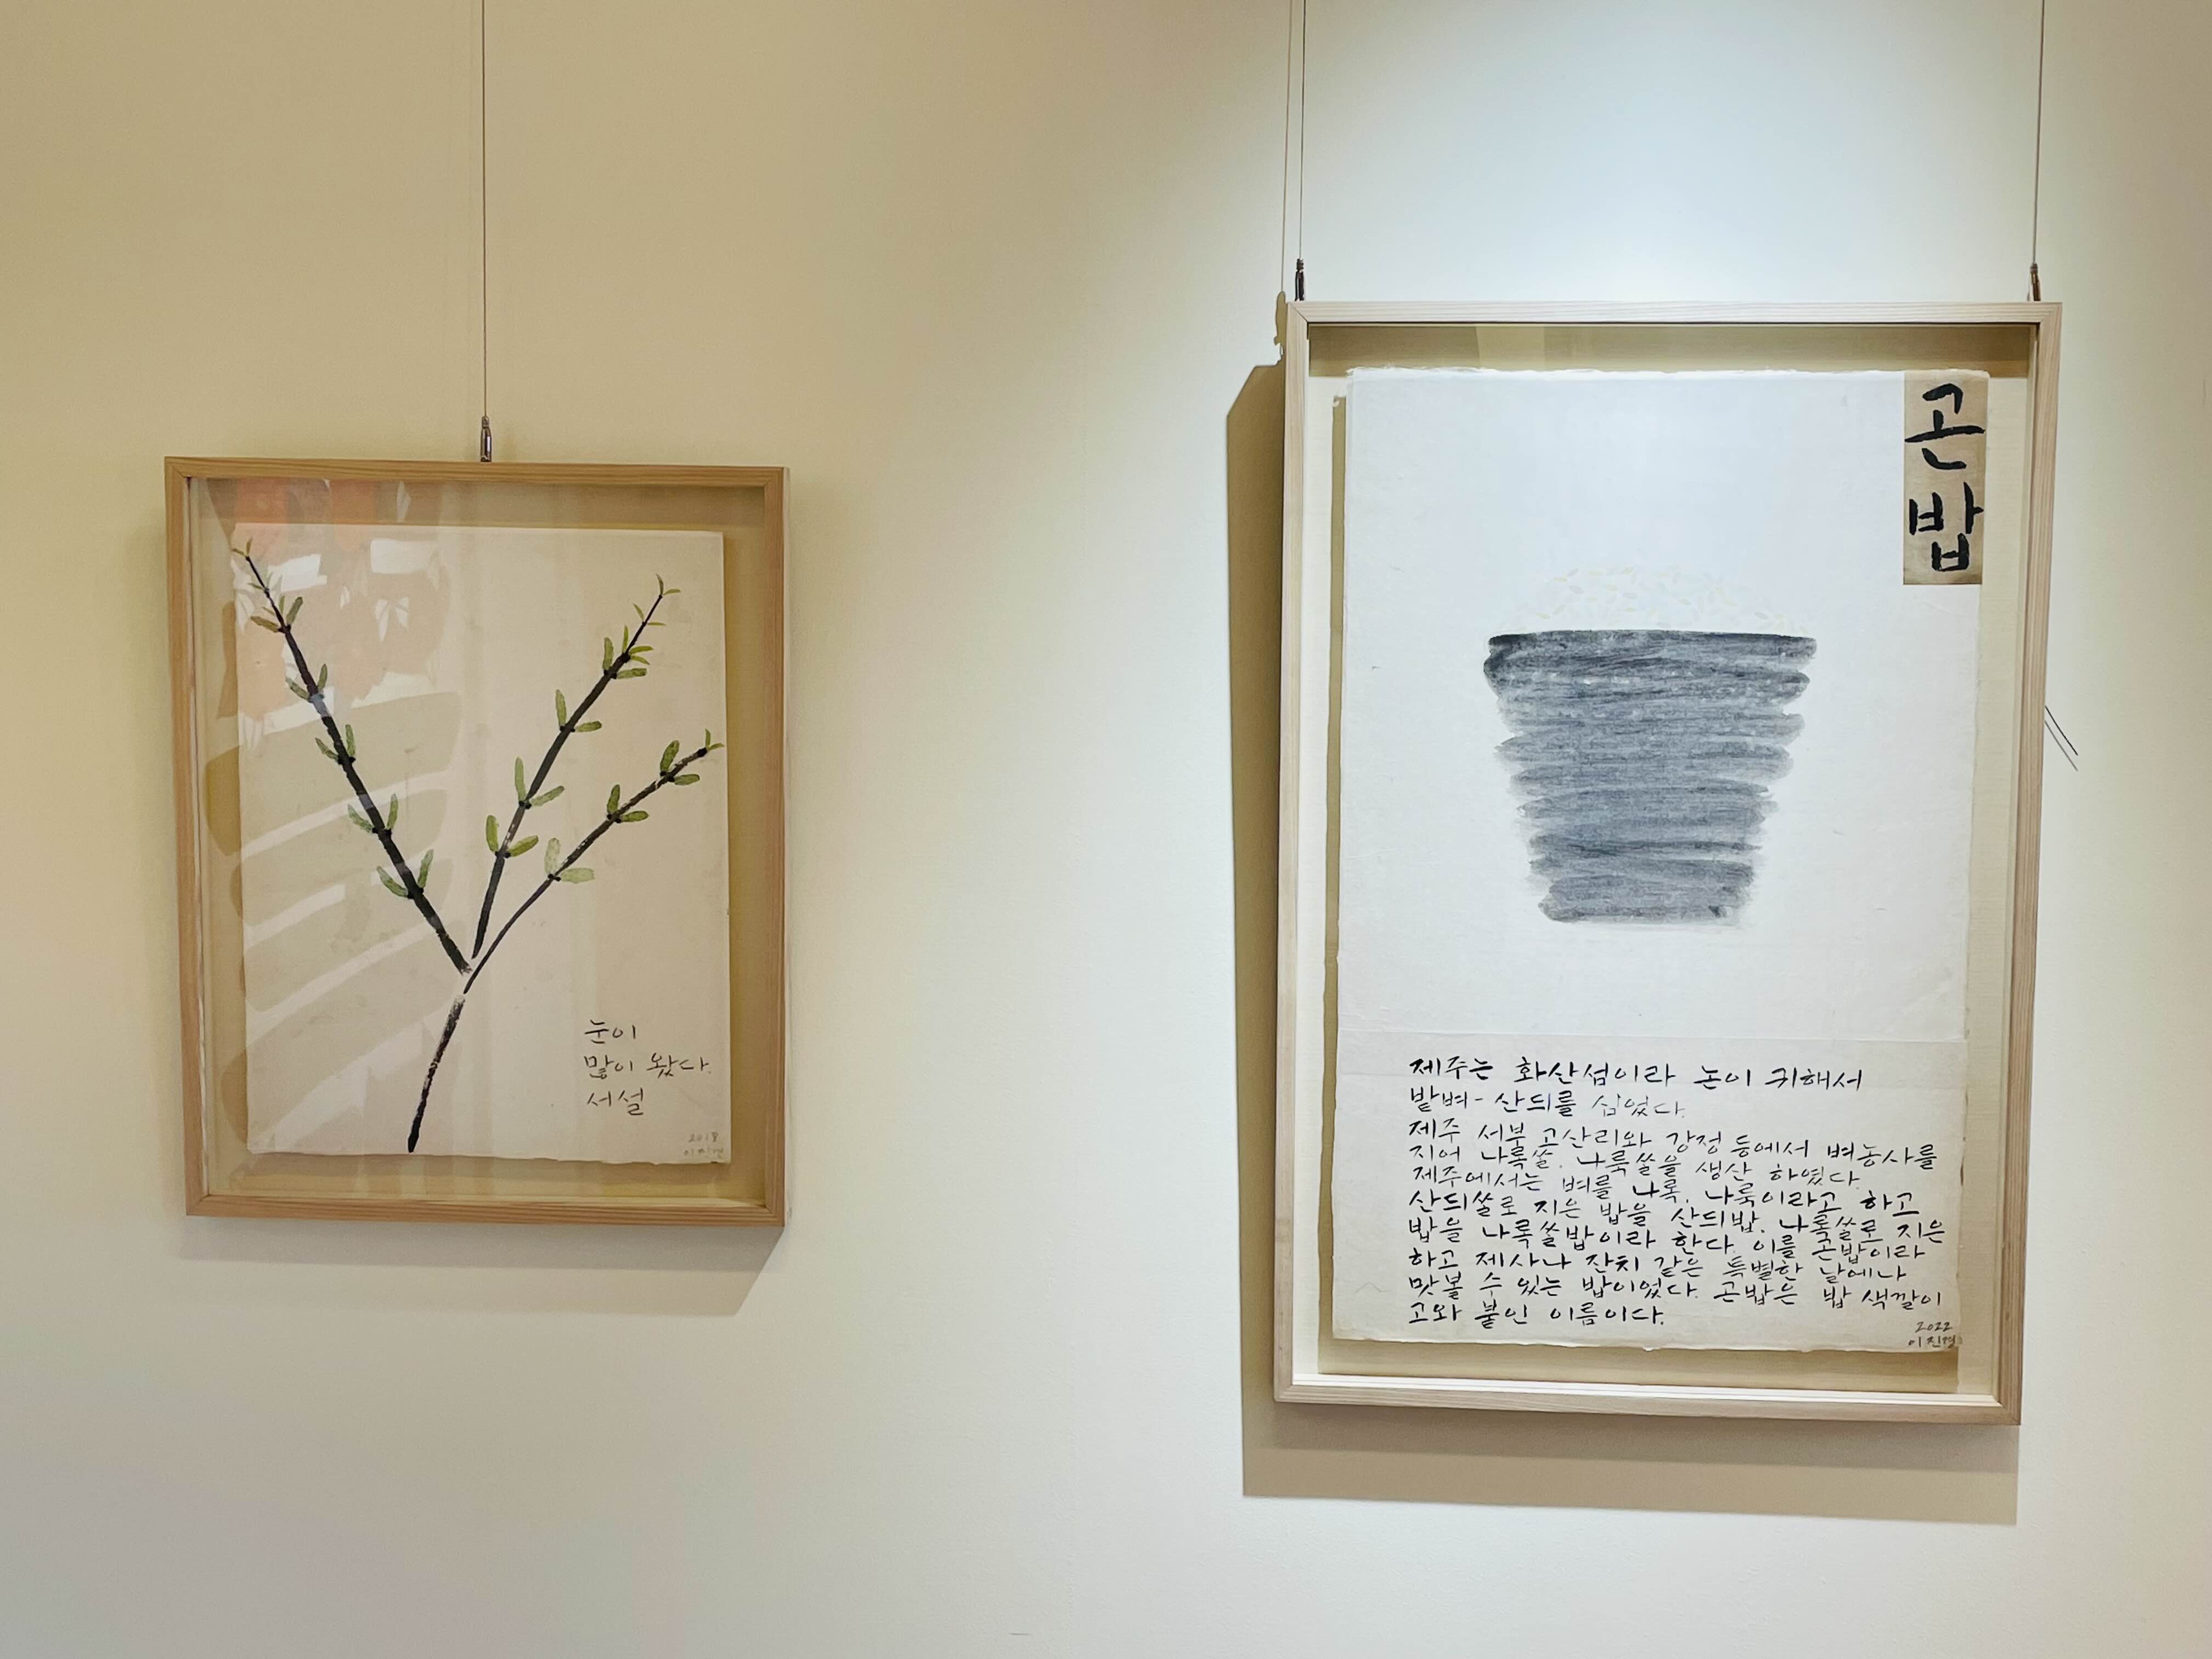 눈이
많이 왔다.
서설
2018
이진경
곤밥
제주는 화산섬이라 논이 귀해서
밭벼- 산듸를 심었다.
제주 서부 고산리와 강정 등에서 벼농사를
지어 나록쌀. 나룩쌀을 생산 하였다.
제주에서는 벼를 나록. 나룩이라고 하고
산듸쌀로 지은 밥을 산듸밥. 나록쌀로 지은
밥을 나록쌀밥이라 한다. 이를 곤밥이라
하고 제사나 잔치 같은 특별한 날에나
맛볼 수 있는 밥이었다. 곤밥은 밥 색깔이
고와 붙인 이름이다.
2022
이진경